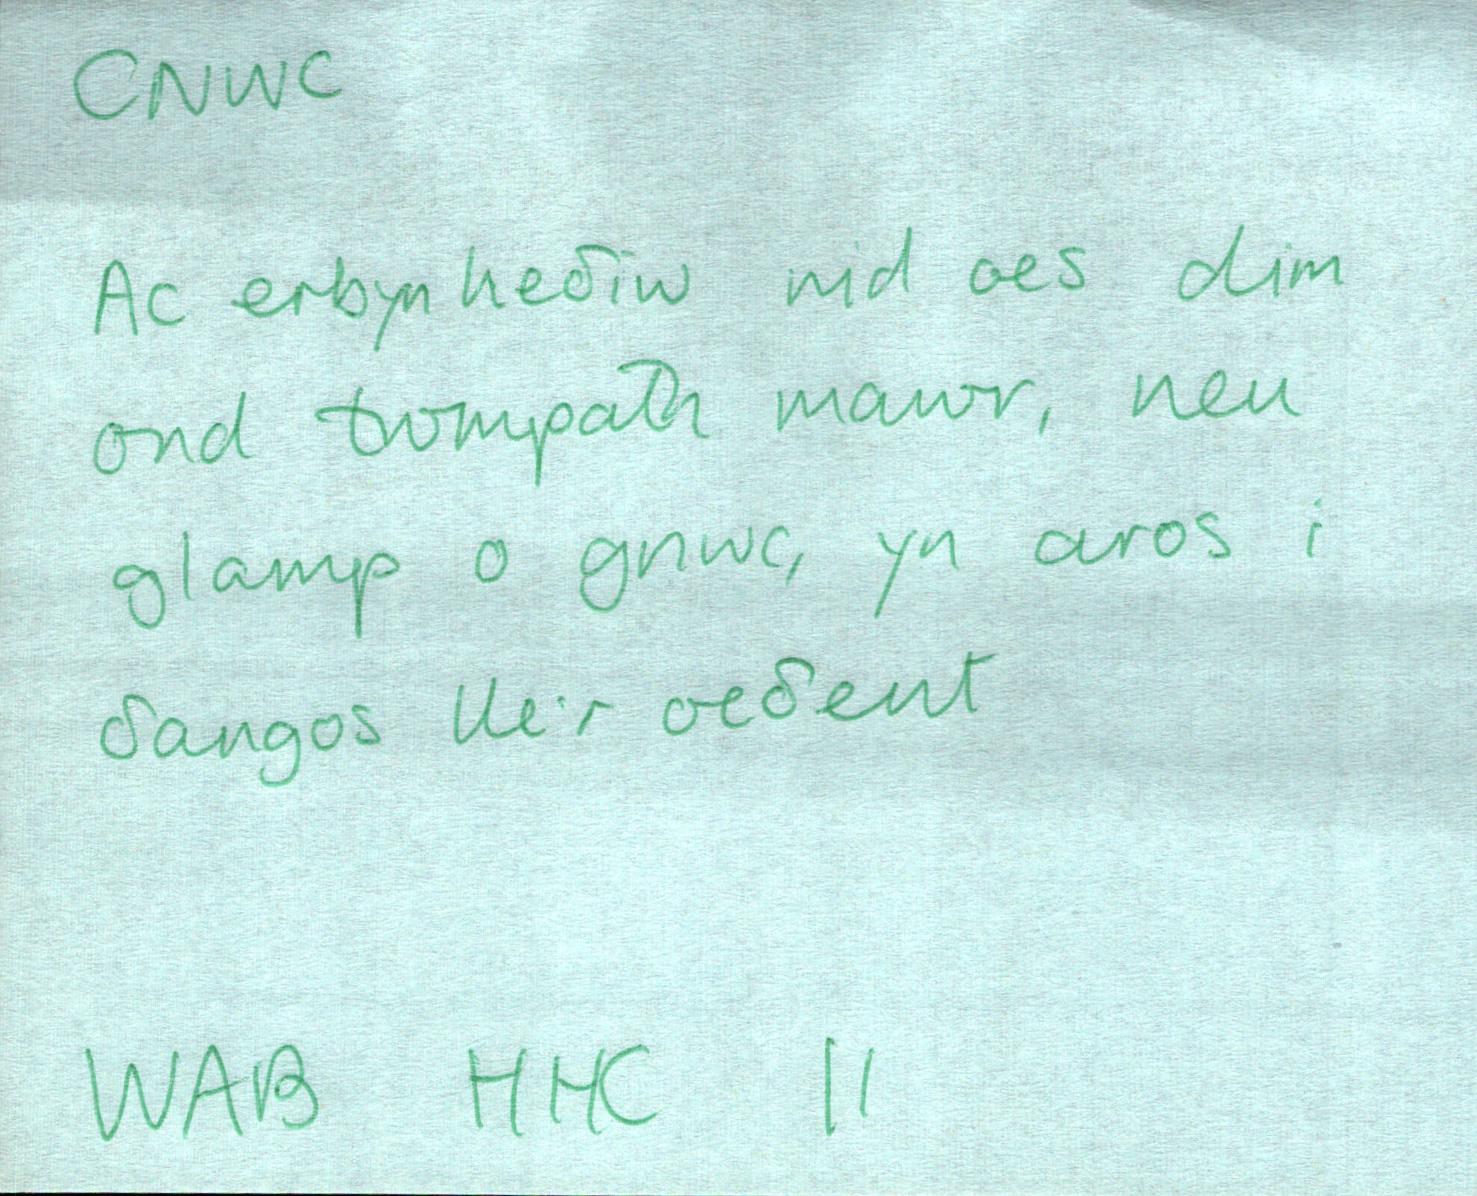 CNWC
Ac erbyn heδiw nid oes dim
ond twmpath mawr, neu
glamp o gnwc, yn aros i
δangos lle'r oeδent
WAB HHC 11